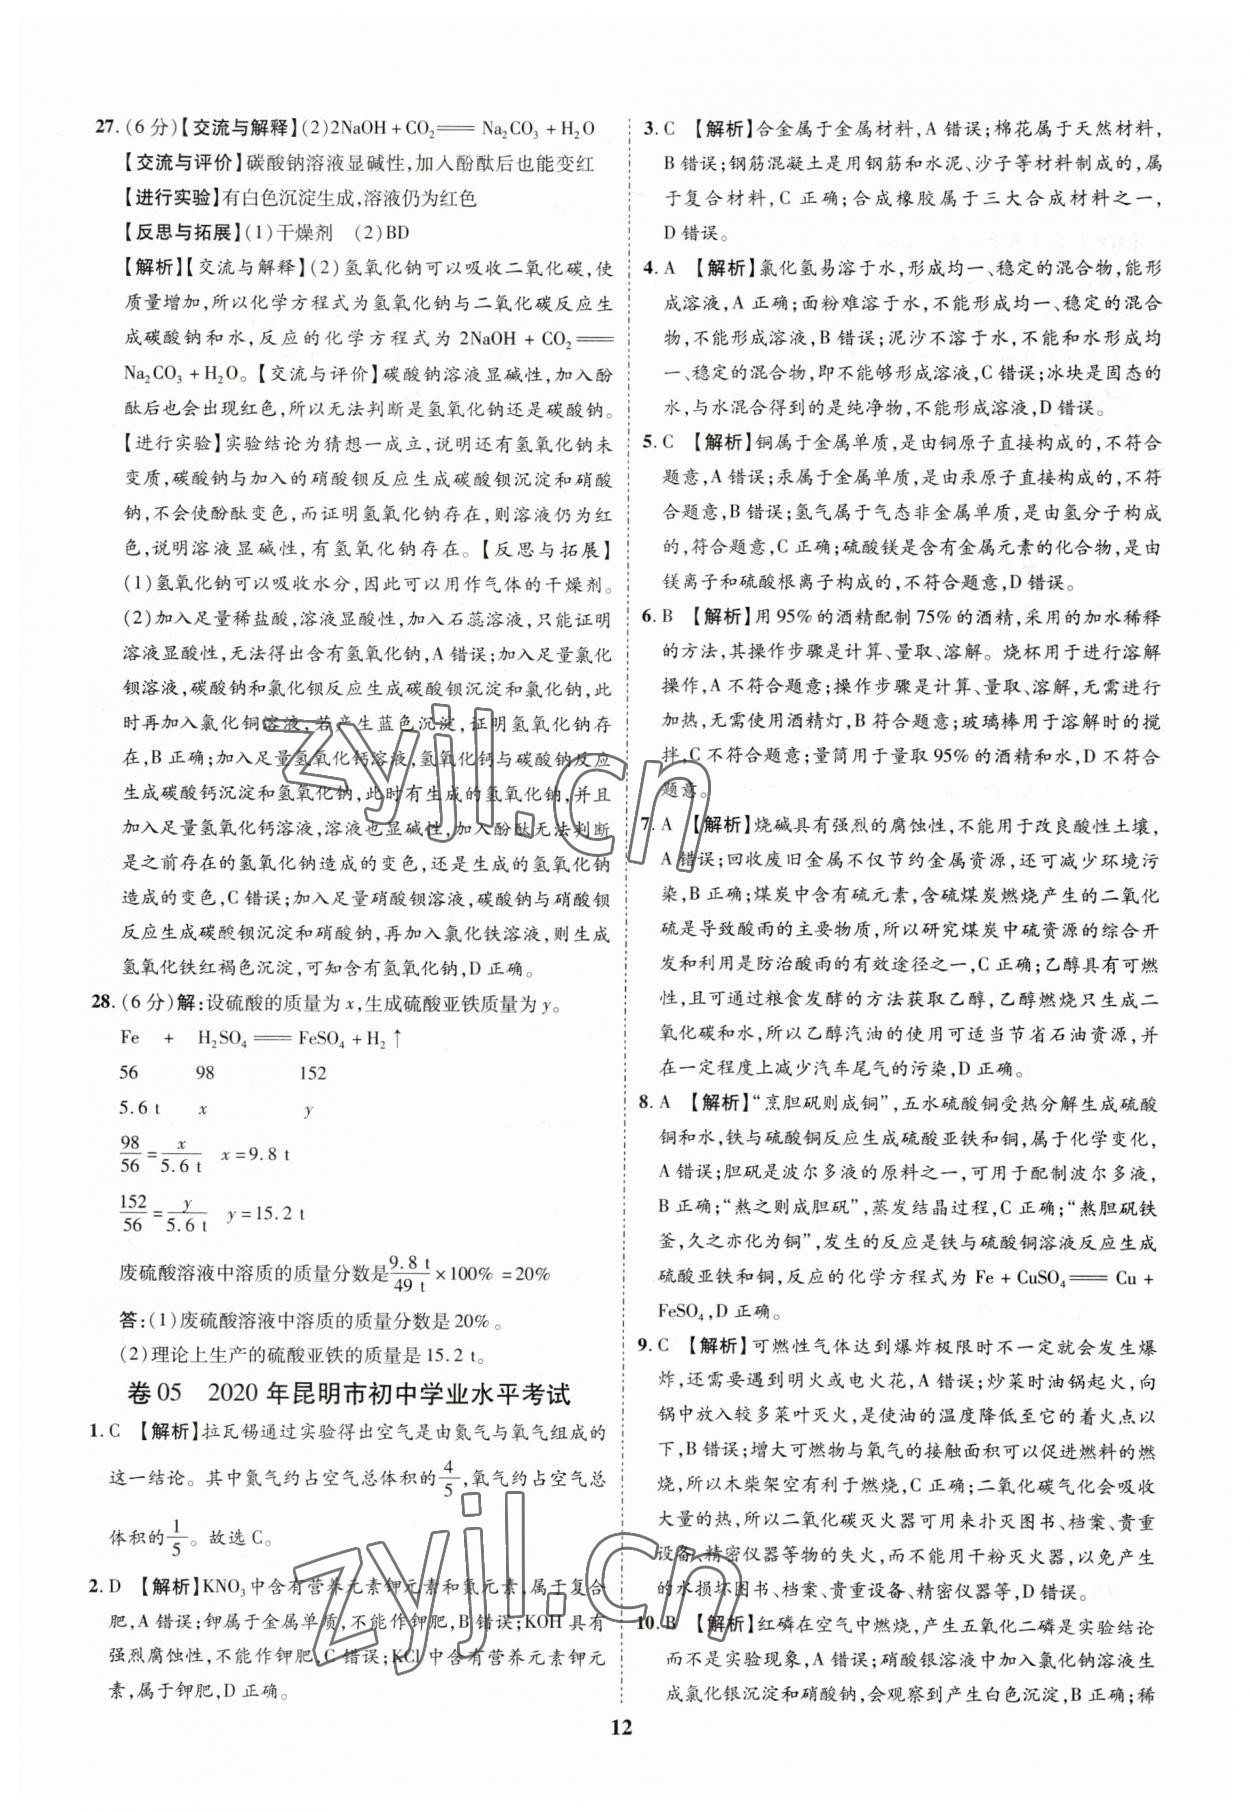 27. (6分)【交流与解释】(2)2NaOH + CO₂ ══ Na₂CO₃ + H₂O
【交流与评价】碳酸钠溶液显碱性,加入酚酞后也能变红
【进行实验】有白色沉淀生成,溶液仍为红色
【反思与拓展】(1)干燥剂 (2)BD
【解析】【交流与解释】(2)氢氧化钠可以吸收二氧化碳,使
质量增加,所以化学方程式为氢氧化钠与二氧化碳反应生
成碳酸钠和水,反应的化学方程式为 2NaOH + CO₂ ══
Na₂CO₃ + H₂O。【交流与评价】碳酸钠溶液显碱性,加入酚
酞后也会出现红色,所以无法判断是氢氧化钠还是碳酸钠。
【进行实验】实验结论为猜想一成立,说明还有氢氧化钠未
变质,碳酸钠与加入的硝酸钡反应生成碳酸钡沉淀和硝酸
钠,不会使酚酞变色,而证明氢氧化钠存在,则溶液仍为红
色,说明溶液显碱性,有氢氧化钠存在。【反思与拓展】
(1)氢氧化钠可以吸收水分,因此可以用作气体的干燥剂。
(2)加入足量稀盐酸,溶液显酸性,加入石蕊溶液,只能证明
溶液显酸性,无法得出含有氢氧化钠,A 错误;加入足量氯化
钡溶液,碳酸钠和氯化钡反应生成碳酸钡沉淀和氯化钠,此
时再加入氯化铜溶液,若产生蓝色沉淀,证明氢氧化钠存
在,B 正确;加入足量氢氧化钙溶液,氢氧化钙与碳酸钠反应
生成碳酸钙沉淀和氢氧化钠,此时有生成的氢氧化钠,并且
加入足量氢氧化钙溶液,溶液也显碱性,加入酚酞无法判断
是之前存在的氢氧化钠造成的变色,还是生成的氢氧化钠
造成的变色,C 错误;加入足量硝酸钡溶液,碳酸钠与硝酸钡
反应生成碳酸钡沉淀和硝酸钠,再加入氯化铁溶液,则生成
氢氧化铁红褐色沉淀,可知含有氢氧化钠,D 正确。
28. (6分)解:设硫酸的质量为 x,生成硫酸亚铁质量为 y。
Fe + H₂SO₄ ══ FeSO₄ + H₂↑
56 98 152
5.6 t x y
98/56 = x/5.6 t x = 9.8 t
152/56 = y/5.6 t y = 15.2 t
废硫酸溶液中溶质的质量分数是 9.8 t/49 t × 100% = 20%
答:(1)废硫酸溶液中溶质的质量分数是 20%。
(2)理论上生产的硫酸亚铁的质量是 15.2 t。
卷 05 2020 年昆明市初中学业水平考试
1. C 【解析】拉瓦锡通过实验得出空气是由氮气与氧气组成的
这一结论。其中氮气约占空气总体积的 4/5,氧气约占空气总
体积的 1/5。故选 C。
2. D 【解析】KNO₃ 中含有营养元素钾元素和氮元素,属于复合
肥,A 错误;钾属于金属单质,不能作钾肥,B 错误;KOH 具有
强烈腐蚀性,不能作钾肥,C 错误;KCl 中含有营养元素钾元
素,属于钾肥,D 正确。
3. C 【解析】合金属于金属材料,A 错误;棉花属于天然材料,
B 错误;钢筋混凝土是用钢筋和水泥、沙子等材料制成的,属
于复合材料,C 正确;合成橡胶属于三大合成材料之一,
D 错误。
4. A 【解析】氯化氢易溶于水,形成均一、稳定的混合物,能形
成溶液,A 正确;面粉难溶于水,不能形成均一、稳定的混合
物,不能形成溶液,B 错误;泥沙不溶于水,不能和水形成均
一、稳定的混合物,即不能形成溶液,C 错误;冰块是固态的
水,与水混合得到的是纯净物,不能形成溶液,D 错误。
5. C 【解析】铜属于金属单质,是由铜原子直接构成的,不符合
题意,A 错误;汞属于金属单质,是由汞原子直接构成的,不符
合题意,B 错误;氢气属于气态非金属单质,是由氢分子构成
的,符合题意,C 正确;硫酸镁是含有金属元素的化合物,是由
镁离子和硫酸根离子构成的,不符合题意,D 错误。
6. B 【解析】用 95% 的酒精配制 75% 的酒精,采用的加水稀释
的方法,其操作步骤是计算、量取、溶解。烧杯用于进行溶解
操作,A 不符合题意;操作步骤是计算、量取、溶解,无需进行
加热,无需使用酒精灯,B 符合题意;玻璃棒用于溶解时的搅
拌,C 不符合题意;量筒用于量取 95% 的酒精和水,D 不符合
题意。
7. A 【解析】烧碱具有强烈的腐蚀性,不能用于改良酸性土壤,
A 错误;回收废旧金属不仅节约金属资源,还可减少环境污
染,B 正确;煤炭中含有硫元素,含硫煤炭燃烧产生的二氧化
硫是导致酸雨的主要物质,所以研究煤炭中硫资源的综合开
发和利用是防治酸雨的有效途径之一,C 正确;乙醇具有可燃
性,且可通过粮食发酵的方法获取乙醇,乙醇燃烧只生成二
氧化碳和水,所以乙醇汽油的使用可适当节省石油资源,并
在一定程度上减少汽车尾气的污染,D 正确。
8. A 【解析】“烹胆矾则成铜”,五水硫酸铜受热分解生成硫酸
铜和水,铁与硫酸铜反应生成硫酸亚铁和铜,属于化学变化,
A 错误;胆矾是波尔多液的原料之一,可用于配制波尔多液,
B 正确;“熬之则成胆矾”,蒸发结晶过程,C 正确;“熬胆矾铁
釜,久之亦化为铜”,发生的反应是铁与硫酸铜溶液反应生成
硫酸亚铁和铜,反应的化学方程式为 Fe + CuSO₄ ══ Cu +
FeSO₄,D 正确。
9. C 【解析】可燃性气体达到爆炸极限时不一定就会发生爆
炸,还需要遇到明火或电火花,A 错误;炒菜时油锅着火,向
锅中放入较多菜叶灭火,是使油的温度降低至它的着火点以
下,B 错误;增大可燃物与氧气的接触面积可以促进燃料的燃
烧,所以木柴架空有利于燃烧,C 正确;二氧化碳气化会吸收
大量的热,所以二氧化碳灭火器可用来扑灭图书、档案、贵重
设备、精密仪器等物的失火,而不能用干粉灭火器,以免产生
的水损坏图书、档案、贵重设备、精密仪器等,D 错误。
10. B 【解析】红磷在空气中燃烧,产生五氧化二磷是实验结论
而不是实验现象,A 错误;硝酸银溶液中加入氯化钠溶液生
成氯化银沉淀和硝酸钠,会观察到产生白色沉淀,B 正确;稀
12
zyjl.cn
zyjl.cn